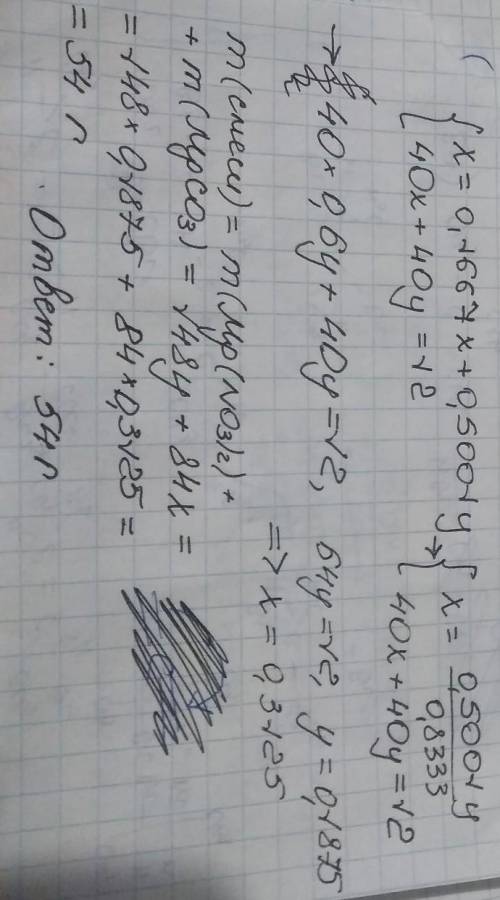 { x = 0,1667x + 0,5001y
{ 40x + 40y = 12
→ { x = 0,5001y / 0,8333
{ 40x + 40y = 12
→ 40 × 0,6y + 40y = 12, 64y = 12, y = 0,1875
=> x = 0,3125
m(смеси) = m(Mg(NO3)2) +
+ m(MgCO3) = 148y + 84x =
= 148 × 0,1875 + 84 × 0,3125 =
= 54 г
Ответ: 54 г